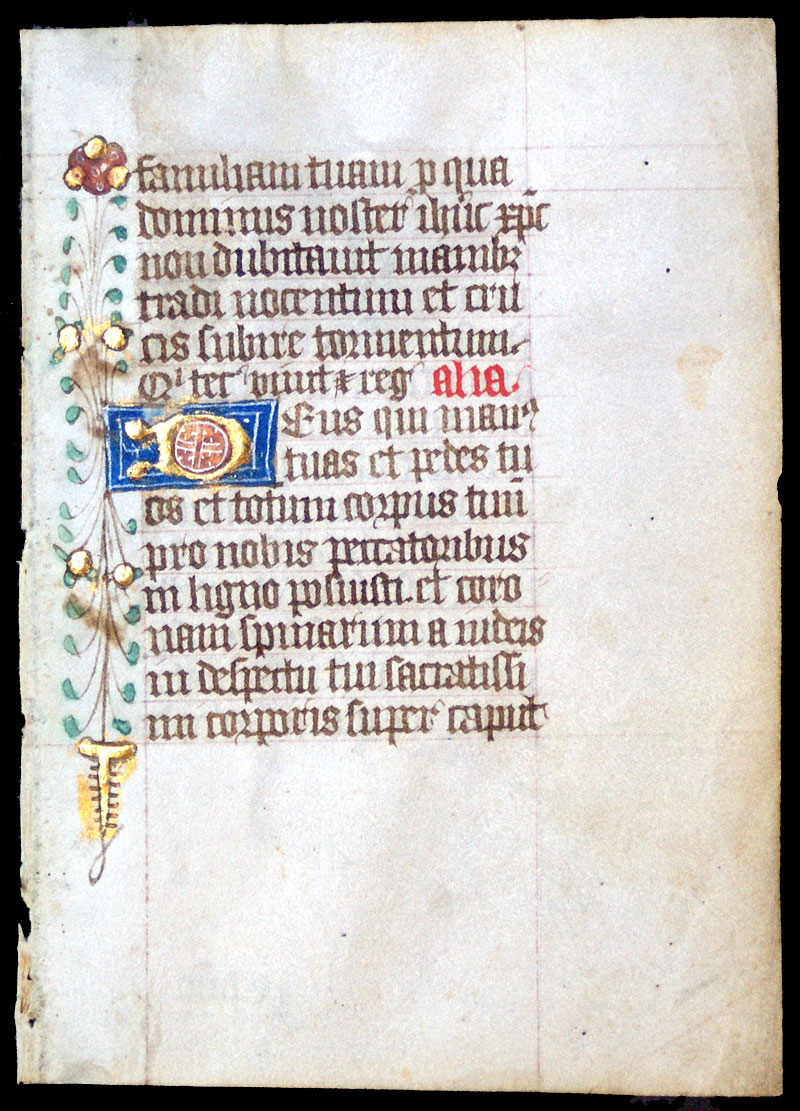 familiam tuam p qua
dominus noster ihūc xp̄c
non dubitauit manibꝫ
tradi nocentum et cru
cis subire tormentum.
Qi tec̄ viuit ⁊ reḡ alia.
Deus qui manꝰ
tuas et pedes tu
os et totum corpus tuū
pro nobis peccatoribus
in ligno posuisti. et coro
nam spinarum a iudeis
in despectu tui sacratissi
mi corporis super caput